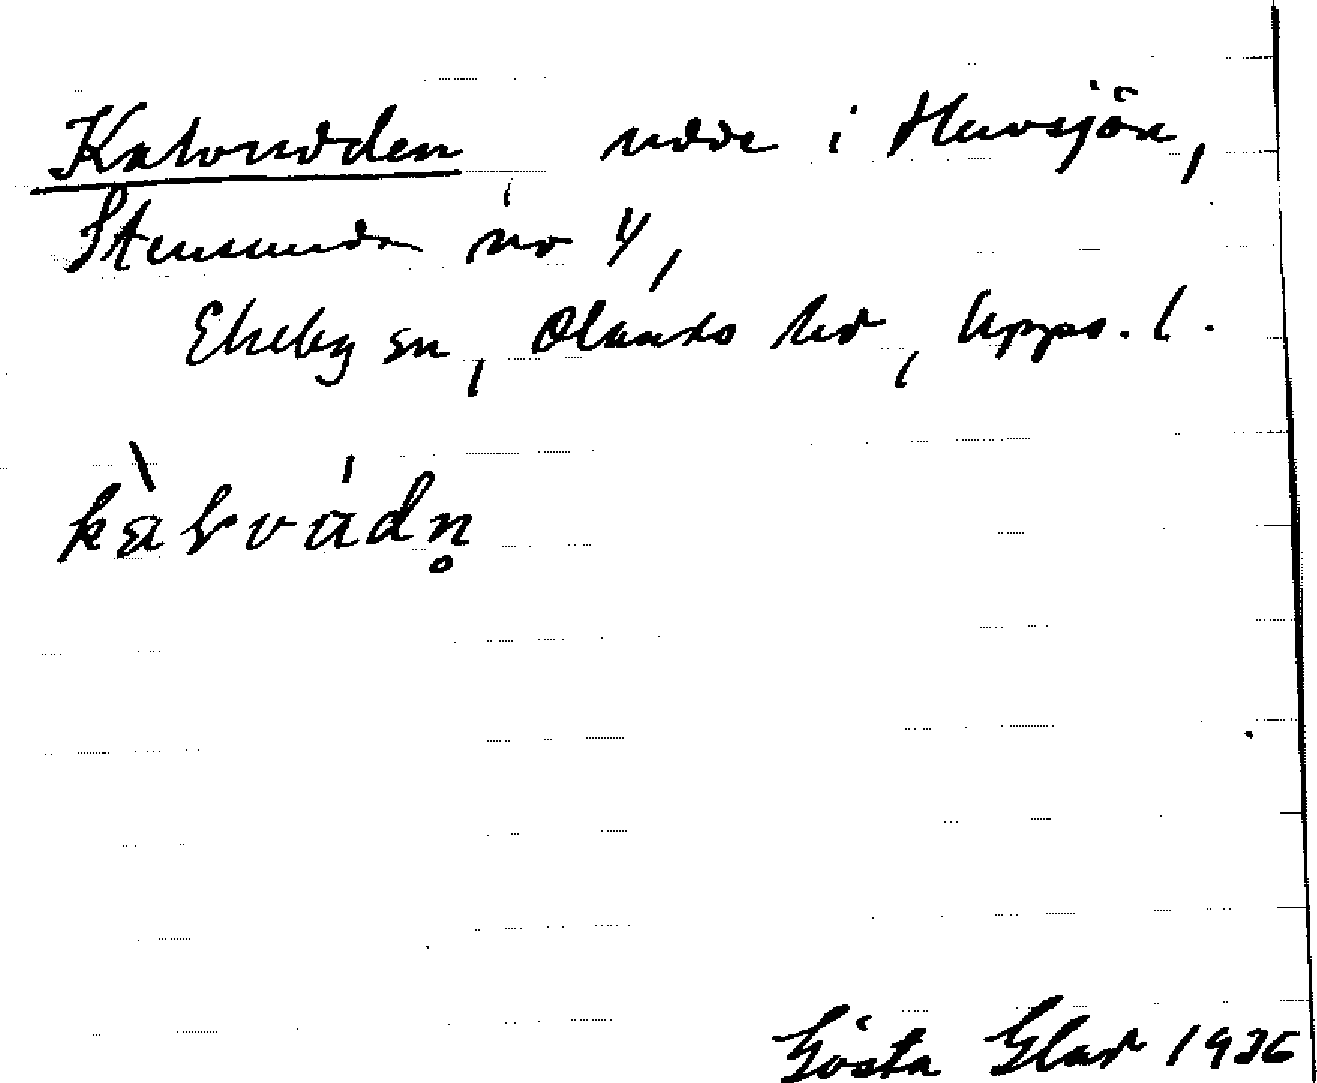 Kalvudden udde i Havsjön,
Stensunda nr 4,
Ekeby sn, Olands hd, Upps. l.
Gösta Elar 1936